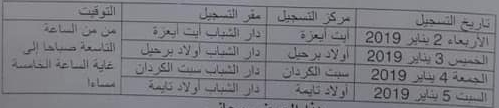 تاريخ التسجيل مركز التسجيل مقر التسجيل التوقيت
الأربعاء 2 يناير 2019 أيت أيعزة دار الشباب أيت ايعزة من من الساعة
الخميس 3 يناير 2019 أولاد برحيل دار الشباب أولاد برحيل التاسعة صباحا إلى
الجمعة 4 يناير 2019 سبت الكردان دار الشباب سبت الكردان غاية الساعة الخامسة
السبت 5 يناير 2019 أولاد تايمة دار الشباب أولاد تايمة مساءا